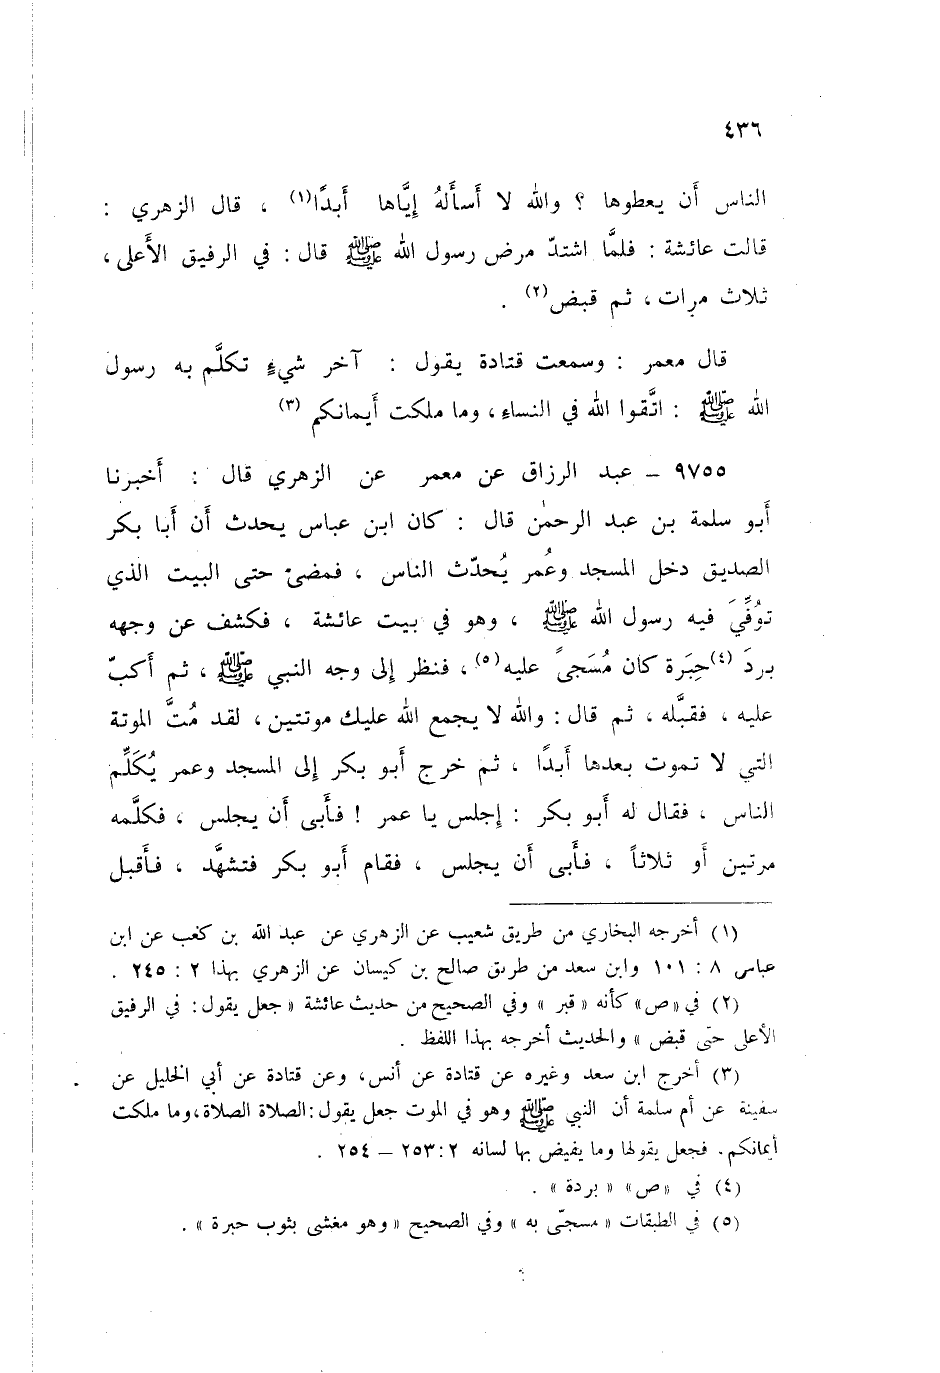 ٤٣٦
الناس أَن يعطوها ؟ والله لا أَسأَلهُ إِيَّاها أَبدًا(١) ، قال الزهري :
قالت عائشة : فلمَّا اشتدّ مرض رسول الله ﷺ قال : في الرفيق الأَعلى ،
ثلاث مرات ، ثم قبض(٢) .
قال معمر : وسمعت قتادة يقول : آخر شيءٍ تكلَّم به رسول
الله ﷺ : اتَّقوا الله في النساء ، وما ملكت أَيمانكم (٣)
٩٧٥٥ – عبد الرزاق عن معمر عن الزهري قال : أَخبرنا
أَبو سلمة بن عبد الرحمٰن قال : كان ابن عباس يحدث أن أَبا بكر
الصديق دخل المسجد وعُمر يُحدّث الناس ، فمضىٰ حتى البيت الذي
توُفِّيَ فيه رسول الله ﷺ ، وهو في بيت عائشة ، فكشف عن وجهه
بردَ (٤)حِبَرة كان مُسَجىً عليه(٥) ، فنظر إِلى وجه النبي ﷺ ، ثم أَكبّ
عليه ، فقبَّله ، ثم قال : والله لا يجمع الله عليك موتتين ، لقد مُتَّ الموتة
التي لا تموت بعدها أَبدًا ، ثم خرج أَبو بكر إِلى المسجد وعمر يُكَلِّم
الناس ، فقال له أَبو بكر : إِجلس يا عمر ! فأَبى أَن يجلس ، فكلَّمه
مرتين أَو ثلاثاً ، فأَبى أَن يجلس ، فقام أَبو بكر فتشهَّد ، فأَقبل
(١) أخرجه البخاري من طريق شعيب عن الزهري عن عبد الله بن كعب عن ابن
عباس ٨ : ١٠١ وابن سعد من طريق صالح بن كيسان عن الزهري بهذا ٢ : ٢٤٥ .
(٢) في «ص» كأنه « قبر » وفي الصحيح من حديث عائشة « جعل يقول : في الرفيق
الأعلى حتّى قبض » والحديث أخرجه بهذا اللفظ .
(٣) أخرج ابن سعد وغيره عن قتادة عن أنس، وعن قتادة عن أبي الخليل عن
سفينة عن أم سلمة أن النبي ﷺ وهو في الموت جعل يقول : الصلاة الصلاة ، وما ملكت
أيمانكم . فجعل يقولها وما يفيض بها لسانه ٢ : ٢٥٣ – ٢٥٤ .
(٤) في «ص» « بردة » .
(٥) في الطبقات « مسجّى به » وفي الصحيح « وهو مغشى بثوب حبرة » .